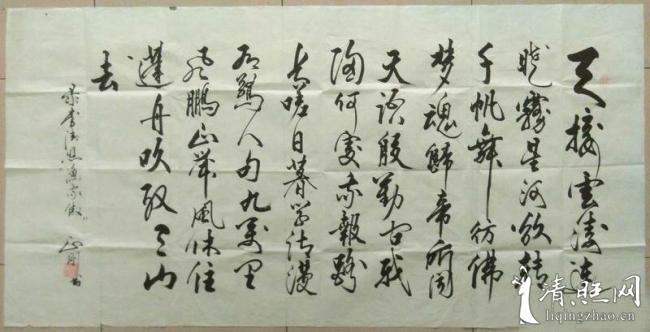 天接雲濤連
曉霧星河欲轉
千帆舞彷佛
梦魂歸帝所闻
天语殷勤问我
歸何處我報路
长嗟日暮学诗漫
有驚人句九萬里
风鹏正举風休住
蓬舟吹取三山
去
录李清照渔家傲
书
清照网
liqingzhao.cn